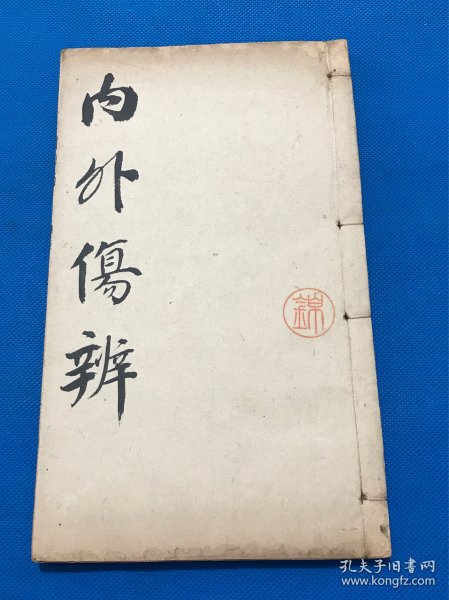 内外傷辨
錦
孔夫子旧书网
www.kongfz.com